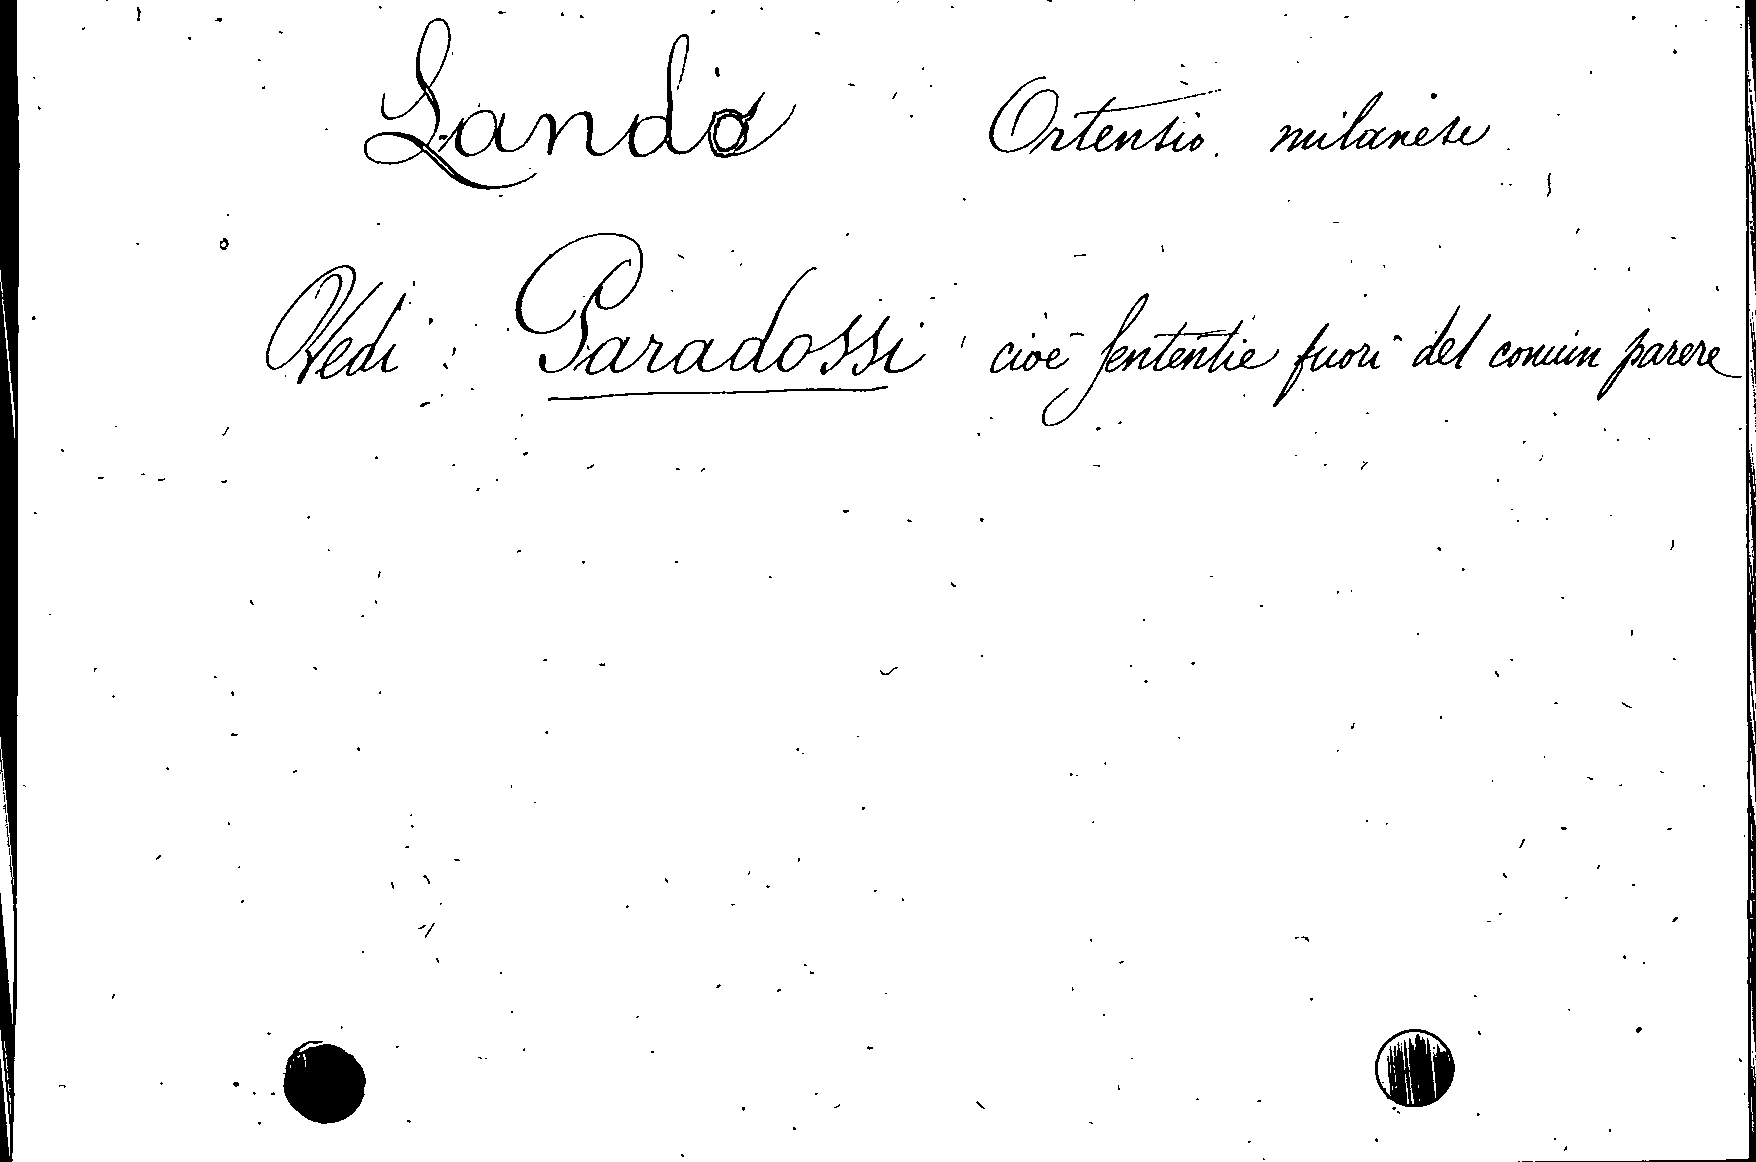 Lando Ortensio. milanese
Vedi: Paradossi cioè sententie fuori del comun parere